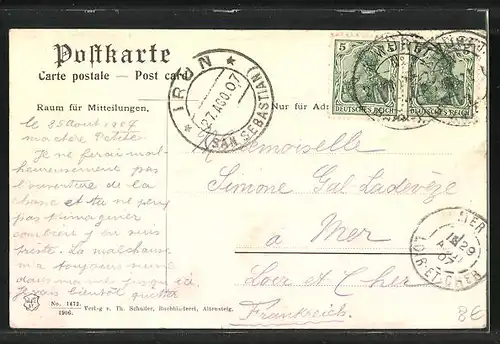 Postkarte
Carte postale — Post card
Raum für Mitteilungen.
Nur für Adr
5
DEUTSCHES REICH
DEUTSCHES REICH
* IRUN *
27.AGO.07
(SAN SEBASTIAN)
le 25 août 1907
ma chère Petite
Je ne ferai mal-
heureusement pas
l'ouverture de la
chasse et tu ne peux
pas t'imaginer
combien j'en suis
triste. La malchance
m'a toujours suivi
dans
Je vais bientôt quitter
Mademoiselle
Simone Gal-Ladevèze
a Mer
Loir et Cher
Frankreich
MER
29
07
LOIR-ET-CHER
No. 1472.
1906.
Verlag v. Th. Schuler, Buchbinderei, Altensteig.
8€